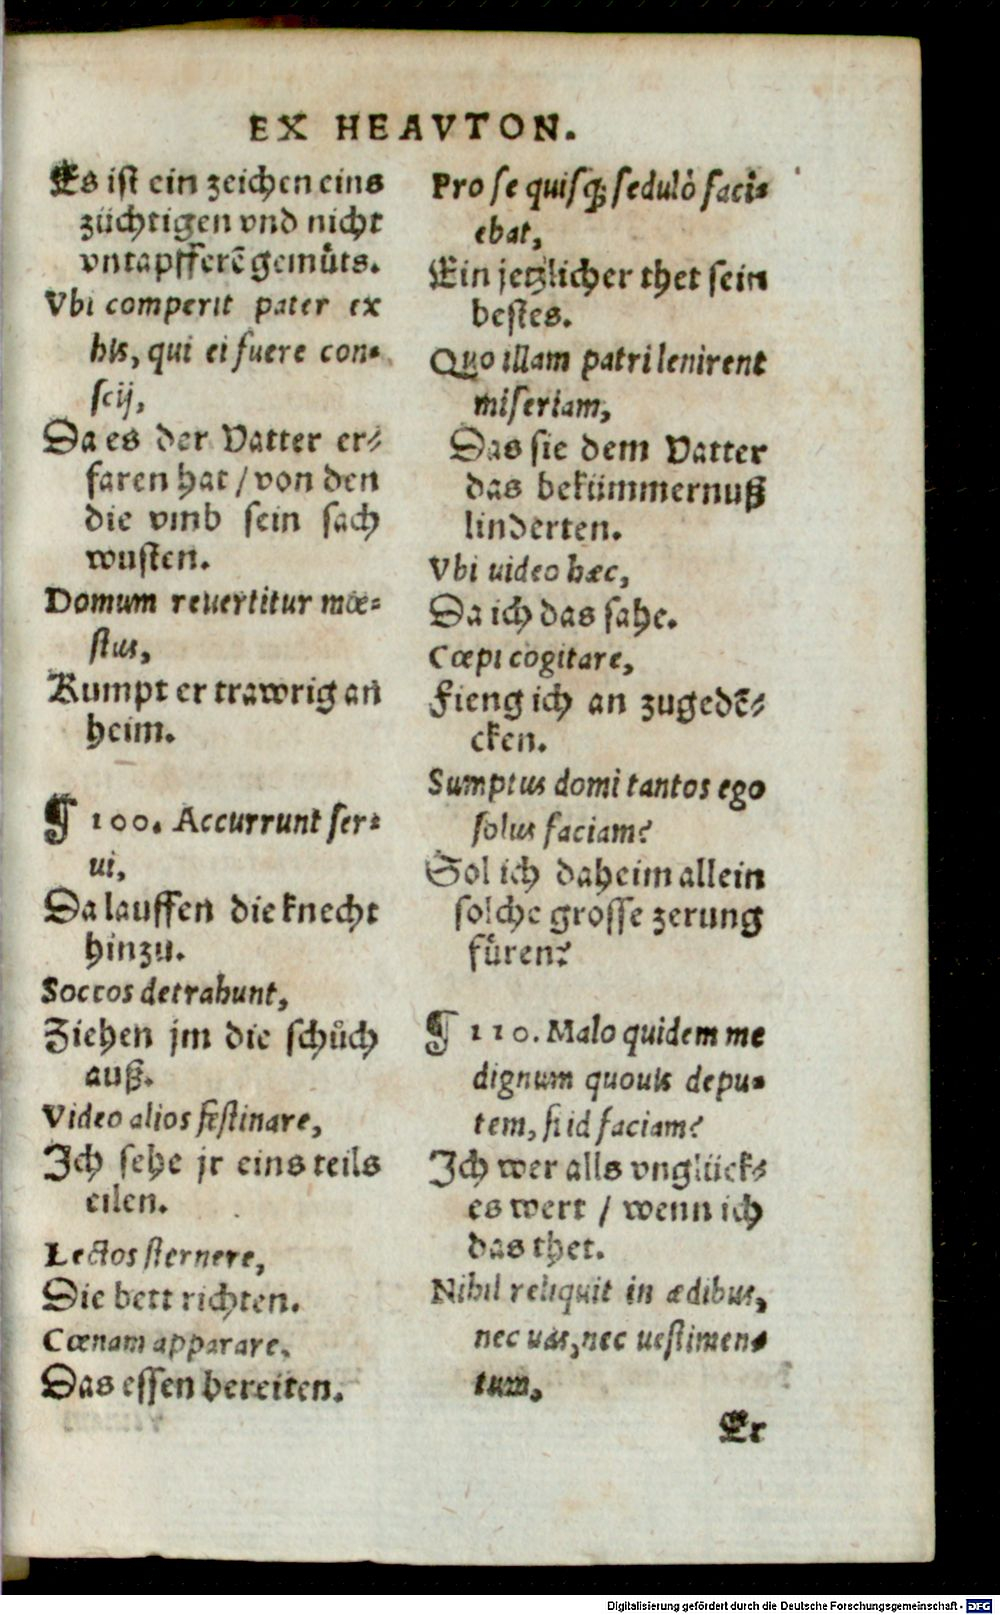 EX HEAVTON.
Es ist ein zeichen eins
züchtigen vnd nicht
vntapfferẽ gemuͤts.
Vbi comperit pater ex
his, qui ei fuere con-
scij,
Da es der Vatter er⸗
faren hat / von den
die vmb sein sach
wusten.
Domum reuertitur mœ-
stus,
Kumpt er trawrig an
heim.
¶ 100. Accurrunt ser-
ui,
Da lauffen die knecht
hinzu.
Soccos detrahunt,
Ziehen jm die schuͦch
auß.
Video alios festinare,
Ich sehe jr eins teils
eilen.
Lectos sternere,
Die bett richten.
Cœnam apparare,
Das essen bereiten.
Pro se quisq; sedulò faci-
ebat,
Ein jetzlicher thet sein
bestes.
Quo illam patri lenirent
miseriam,
Das sie dem Vatter
das bekümmernuß
linderten.
Vbi uideo hæc,
Da ich das sahe.
Cœpi cogitare,
Fieng ich an zugedẽ⸗
cken.
Sumptus domi tantos ego
solus faciam?
Sol ich daheim allein
solche grosse zerung
fuͤren?
¶ 110. Malo quidem me
dignum quouis depu-
tem, si id faciam?
Ich wer alls vnglück⸗
es wert / wenn ich
das thet.
Nihil reliquit in ædibus,
nec uas, nec uestimen-
tum,
Er
Digitalisierung gefördert durch die Deutsche Forschungsgemeinschaft - DFG